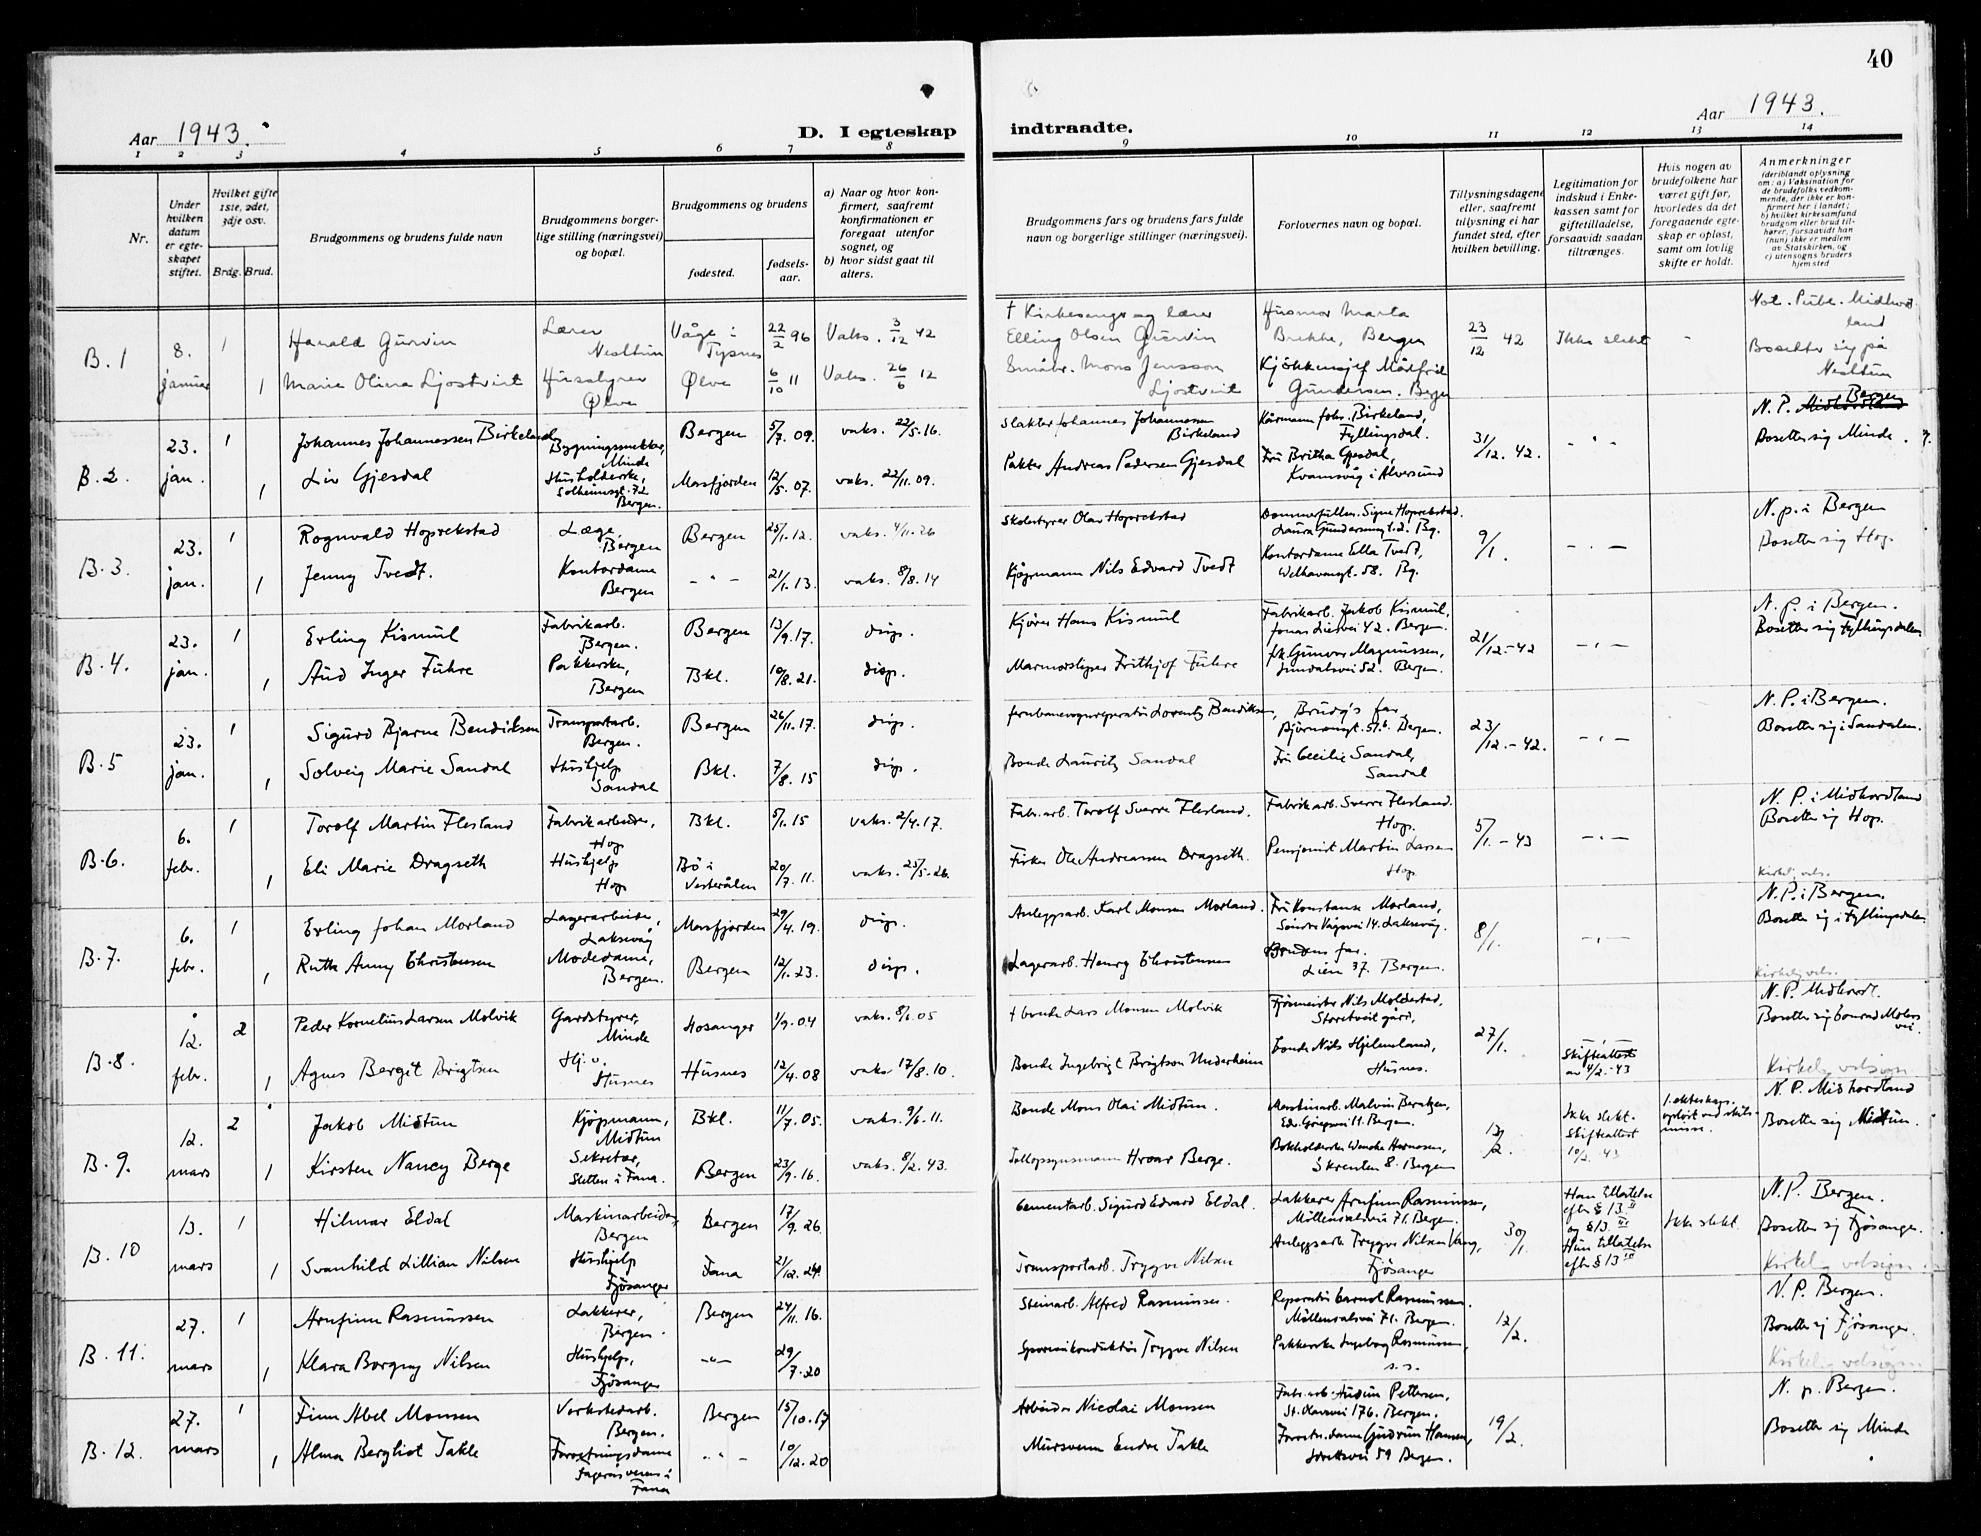 40
Aar 1943.
D. I egteskap
indtraadte.
Aar 1943.
1 2 3 4 5 6 7 8
9 10 11 12 13 14
Nr.
Under hvilken datum er egteskapet stiftet.
Hvilket gifte 1ste, 2det, 3dje osv.
Brdg. Brud.
Brudgommens og brudens fulde navn
Brudgommens borgerlige stilling (næringsvei) og bopæl.
Brudgommens og brudens
fødested.
fødselsaar.
a) Naar og hvor konfirmert, saafremt konfirmationen er foregaat utenfor sognet, og
b) hvor sidst gaat til alters.
Brudgommens fars og brudens fars fulde navn og borgerlige stillinger (næringsvei).
Forlovernes navn og bopæl.
Tillysningsdagene eller, saafremt tillysning ei har fundet sted, efter hvilken bevilling.
Legitimation for indskud i Enkekassen samt for giftetilladelse, forsaavidt saadan tiltrænges.
Hvis nogen av brudefolkene har været gift før, hvorledes da det foregaaende egteskap er opløst, samt om lovlig skifte er holdt.
Anmerkninger
(deriblandt oplysning om: a) Vaksination for de brudefolks vedkommende, der ikke er konfirmert her i landet; b) hvilket kirkesamfund brudgom eller brud tilhører, forsaavidt han (hun) ikke er medlem av Statskirken, og c) utensogns bruders hjemsted
B. 1
8. januar
1
Harald Gurvin
Lærer Nesttun
Våge i Tysnes
22/2 96
Vaks. 3/12 42
1
Marie Olina Ljostveit
Husstyrer Ølve
Ølve
6/10 11
Vaks. 26/6 12
† Kirkesanger og lærer Elling Olsen Gurvin
Småbr. Mons Jensson Ljostveit
Husmor Marta Brekke, Bergen
Gundersen. Bergen
23/12 42
Ikke slekt
-
Not. Publ. Midhordland
Bosetter sig på Nesttun
B. 2.
23. jan.
1
Johannes Johannessen Birkeland
Minde
Bergen
5/7. 09.
vaks. 22/5. 16.
1
Liv Gjesdal
Solheimsgt. 72 Bergen.
Masfjorden
12/5. 07.
vaks. 22/11. 09.
Slakter Johannes Johannessen Birkeland
Andreas Pedersen Gjesdal
Kårmann Johs. Birkeland, Fyllingsdal.
Fru Britha Gjesdal, Kvamsvåg i Alversund
31/12. 42.
- " -
N. P. Bergen
Bosetter sig Minde.
B. 3.
23. jan.
1
Rognvald Hoprekstad
Læge, Bergen
Bergen
25/1. 12.
vaks. 4/11. 26
1
Jenny Tvedt.
Kontordame Bergen
- " -
21/1. 13.
vaks. 8/8. 14
Skolestyrer Olav Hoprekstad
Kjøpmann Nils Edvard Tvedt
Kontordame Ella Tvedt, Welhavensgt. 58. Bg.
9/1.
- " -
N. p. i Bergen
Bosetter sig Hop.
B. 4.
23. jan.
1
Erling Kismul
Fabrikarb. Bergen.
Bergen
13/9. 17.
disp.
1
Aud Inger Fuhre
Pakkerske, Bergen
Bkl.
10/8. 21.
disp.
Kjører Hans Kismul
Marmorsliper Frithjof Fuhre
Fabrikarb. Jakob Kismul, Jonas Liesvei 42. Bergen.
frk. Gunvor Magnussen, Bergen.
21/12. - 42
- " -
N. p. i Bergen.
Bosetter sig Fyllingsdalen
B. 5
23. jan.
1
Sigurd Bjarne Bendiksen
Transportarb. Bergen.
Bergen
26/11. 17.
disp.
1
Solveig Marie Sandal
Hushjelp Sandal
Bkl.
7/8. 15
disp.
Lorentz Bendiksen,
Bonde Lauritz Sandal
Brudg's far, Bergen.
Fru Cecilie Sandal, Sandal
23/12. - 42.
- " -
N. P. i Bergen.
Bosetter sig i Sandalen.
B. 6.
6. febr.
1
Torolf Martin Flesland
Fabrikarbeider, Hop
Bkl.
5/1. 15
vaks. 2/4. 17.
1
Eli Marie Dragseth
Hushjelp Hop
Bø i Vesterålen
20/7. 11.
vaks. 25/5. 26.
Fabr. arb. Torolf Sverre Flesland.
Fisker Ole Andreassen Dragseth.
Fabrikarb. Sverre Flesland. Hop.
Pensjonist Martin Larsen Hop
5/1. - 43
- " -
N. P. i Midhordland
Bosetter sig Hop.
Kirkelig vels.
B. 7.
6. febr.
1
Erling Johan Morland
Lagerarbeider, Laksevåg
Masfjorden
29/4. 19.
disp.
1
Ruth Anny Christensen
Modedame, Bergen.
Bergen
12/1. 23.
disp.
Anleggsarb. Karl Monsen Morland.
Lagerarb. Henry Christensen
Fru Konstanse Morland, Laksevåg.
Brudens far. Lien 37. Bergen.
8/1.
- " -
N. P. i Bergen.
Bosetter sig i Fyllingsdalen
Kirkelig vels.
B. 8.
12. febr.
2
Peder Kornelius Larsen Molvik
Gardstyrer, Minde
Hosanger
1/9. 04
vaks. 8/6. 05
1
Agnes Bergit Brigtsen
Husnes
Husnes
12/4. 08
vaks 17/8. 10.
† bonde Lars Monsen Molvik
Bonde Ingebrigt Brigtson Underheim
Fjøsmeister Nils Moldestad, Storetveit gård,
bonde Nils Hjelmeland, Husnes.
27/1.
Skifteattest av 4/2. - 43
N. P. Midhordl.
Bosetter sig Conrad Mohrs vei.
Kirkelig velsign.
B. 9.
12. mars
2
Jakob Midtun
Kjøpmann, Midtun
Bkl.
11/7. 05.
vaks. 9/6. 11.
1
Kirsten Nancy Berge
Sekretær, Sletten i Fana.
Bergen
23/9. 16.
vaks. 8/2. 43.
Bonde Mons Olai Midtun.
Tollopsynsmann Hroar Berge.
Maskinarb. Malvin Berntzen, Edv. Griegsvei 11. Bergen.
Bokholderske Wenche Hermansen, Skrenten 8. Bergen
Ikke slekt.
Skifteattest 10/2. 43
1. ekteskap opløst ved skilsmisse.
N. P. Midhordland
Bosetter sig Midtun.
B. 10
13. mars
1
Hilmar Eldal
Maskinarbeider, Bergen
Bergen
17/9. 26.
1
Svanhild Lillian Nilsen
Hushjelp Fjøsanger
Fana
21/12. 24.
Cementarb. Sigurd Edvard Eldal.
Transportarb. Trygve Nilsen
Lakkerer Arnfinn Rasmussen, Möllendalsvei 71. Bergen.
Anleggsarb. Trygve Nilsen Vang, Fjøsanger
30/1.
Ham tillatelse efter § 13 II og § 13 III
Hun tillatelse efter § 13 III
Ikke slekt.
N. P. Bergen.
Bosetter sig Fjøsanger.
Kirkelig velsign.
B. 11.
27. mars
1
Arnfinn Rasmussen
Lakkerer, Bergen.
Bergen
24/11. 16.
1
Klara Borgny Nilsen
Hushjelp, Fjøsanger
- " -
29/7. 20
Steinarb. Alfred Rasmussen.
Sporveiskonduktør Trygve Nilsen
Reparatør Bernot Rasmussen. Möllendalsvei 71. Bergen.
Pakkerske Ingeborg Rasmussen, s. s.
12/2.
N. P. Bergen.
Bosetter sig Fjøsanger.
Kirkelig velsign.
B. 12.
27. mars
1
Finn Abel Monsen
Verkstedarb. Bergen.
Bergen
15/10. 17
1
Alma Bergliot Takle
Forretningsdame i Fana
- " -
10/12. 20
Arbeider Nicolai Monsen
Mursvenn Endre Takle
Fabr. arb. Audun Pettersen, St. Olavsvei 176. Bergen.
Forretn. dame Gudrun Hansen, 59 Bergen.
19/2.
N. p. Bergen.
Bosetter sig Minde